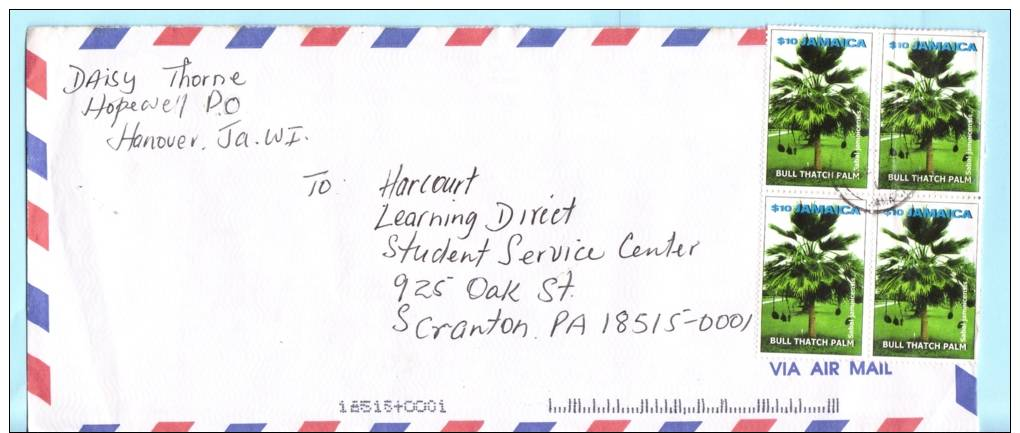 Daisy Thorne
Hopewell P.O
Hanover. Ja. W.I.
To: Harcourt
Learning Direct
Student Service Center
925 Oak St.
Scranton. PA 18515-0001
$10 JAMAICA
Sabal jamaicensis
BULL THATCH PALM
$10 JAMAICA
Sabal jamaicensis
BULL THATCH PALM
$10 JAMAICA
Sabal jamaicensis
BULL THATCH PALM
$10 JAMAICA
Sabal jamaicensis
BULL THATCH PALM
VIA AIR MAIL
18515+0001